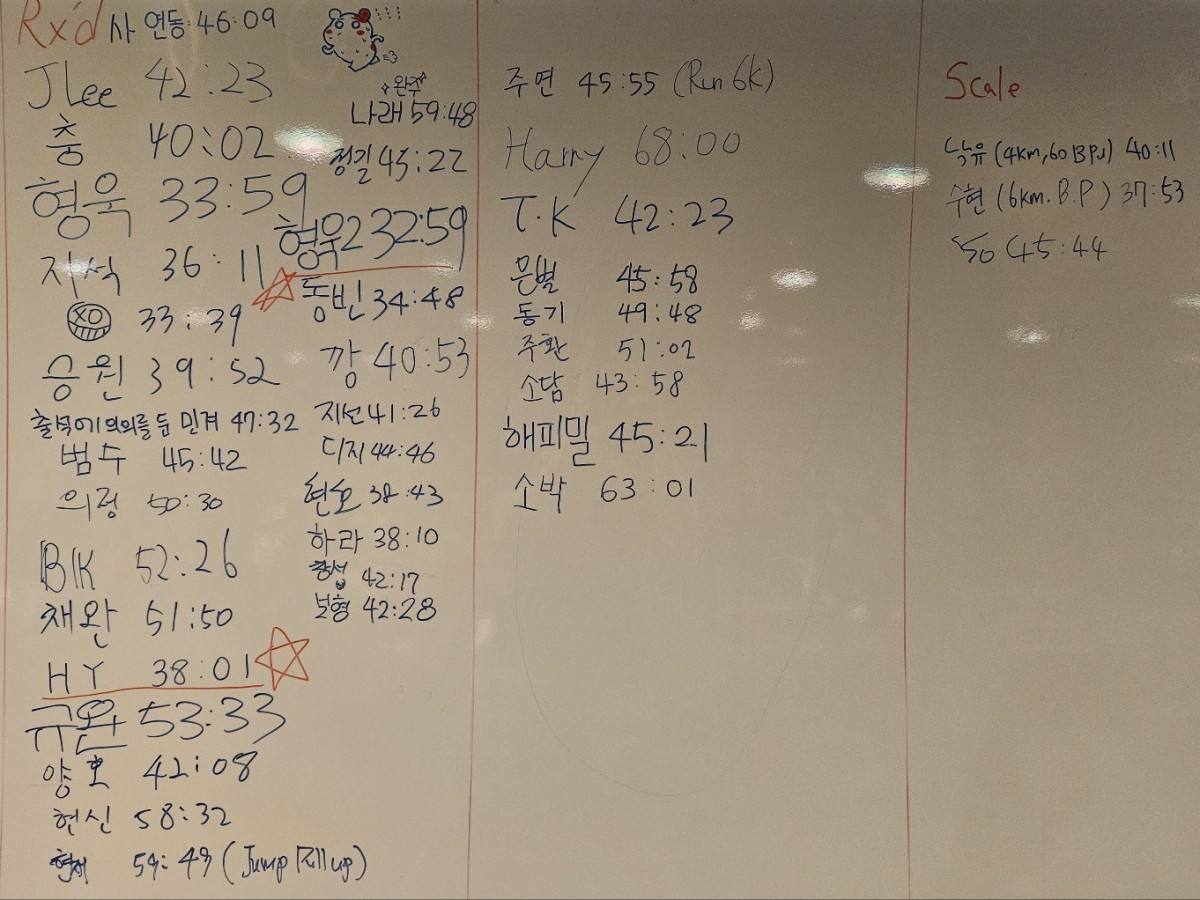 Rx'd 사 연동 46:09
JLee 42:23
충 40:02
형욱 33:59
지석 36:11
XO 33:39
승원 39:52
출석에 의의를 둠 민겨 47:32
범수 45:42
의정 50:30
BK 52:26
채완 51:50
HY 38:01
규완 53:33
양호 42:08
헌신 58:32
59:49 (Jump Pull up)
완주
나래 59:48
정길 45:22
형욱2 32:59
동빈 34:48
깡 40:53
지선 41:26
디지 44:46
현호 38:43
하라 38:10
42:17
보형 42:28
주연 45:55 (Run 6K)
Harry 68:00
T.K 42:23
은별 45:58
동기 49:48
주환 51:02
소담 43:58
해피밀 45:21
소박 63:01
Scale
낙유 (4km, 60 BPU) 40:11
수현 (6km. B.P) 37:53
50 45:44